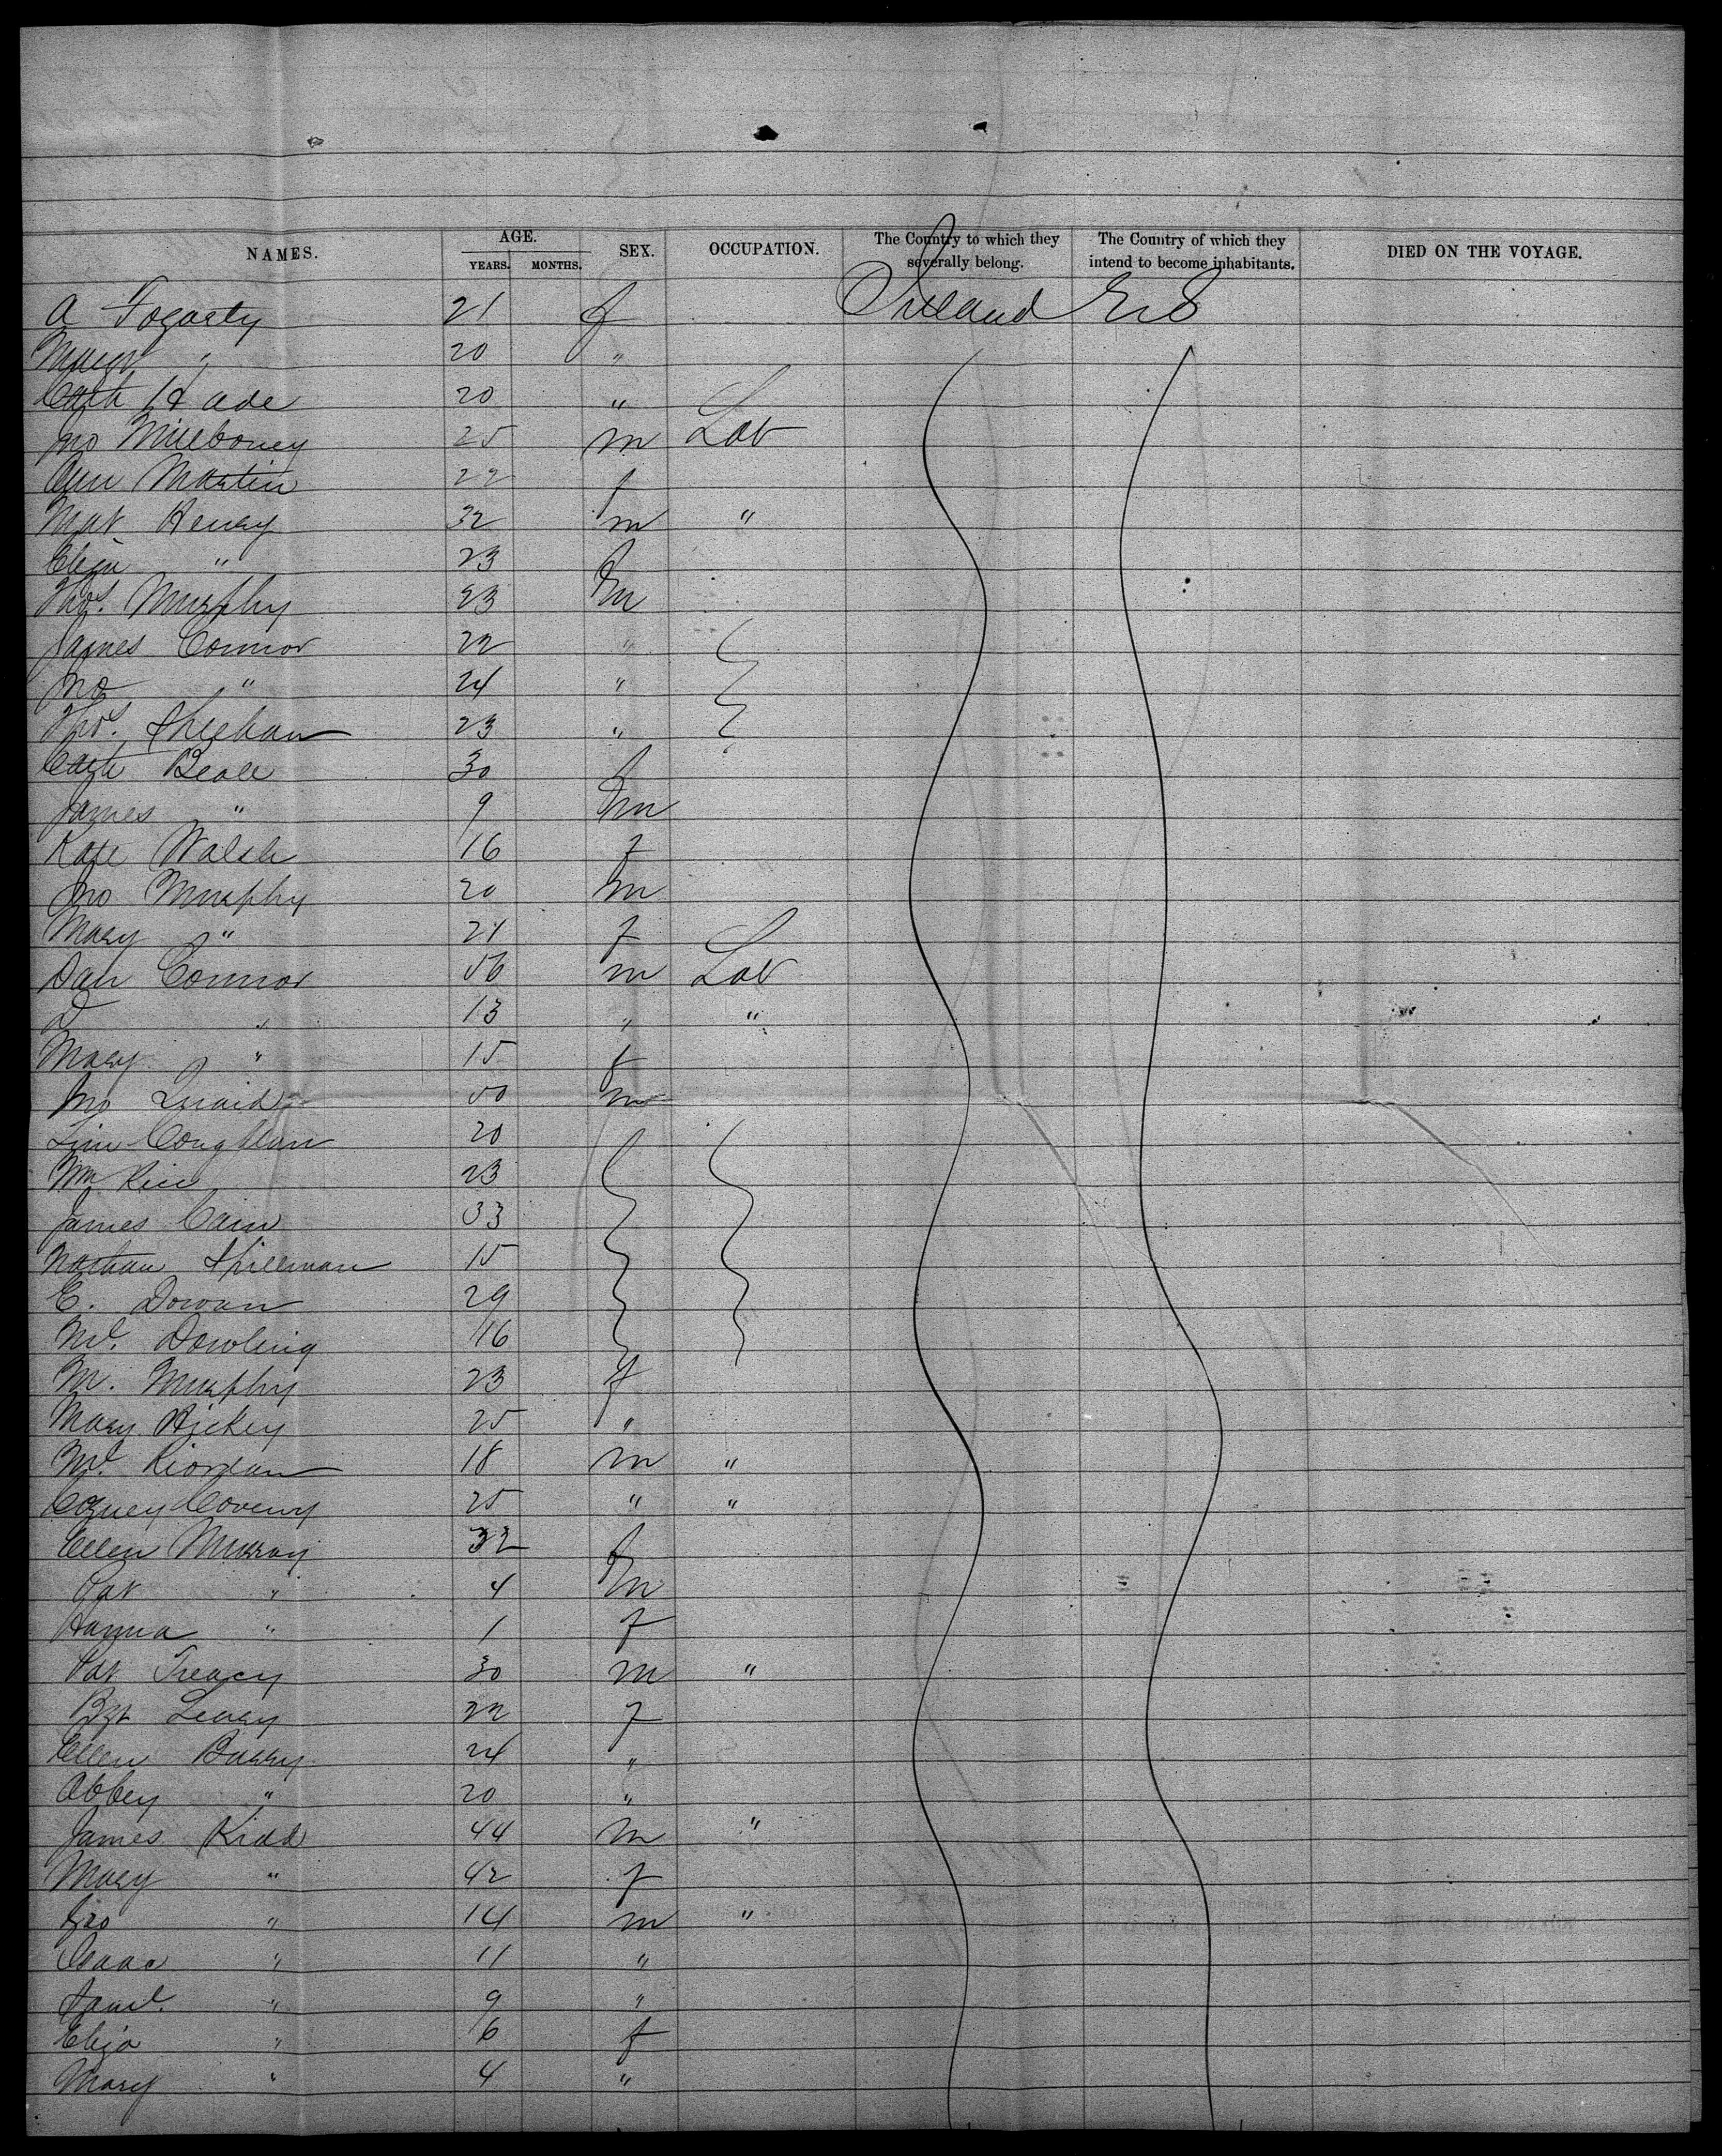 NAMES. AGE. YEARS. MONTHS. SEX. OCCUPATION. The Country to which they severally belong. The Country of which they intend to become inhabitants. DIED ON THE VOYAGE.
A Fogarty 21 f Ireland U S
Margt " 20 "
Cath Hade 20 "
Jno 25 m Lab
Ann Martin 22 f
Mat Henry 32 m "
Eliza " 23 f
Thos. Murphy 23 m
James Connor 22 "
Jno " 24 "
Thos. Sheehan 23 "
Cath Beale 30 f
James " 9 m
Kate Walsh 16 f
Jno Murphy 20 m
Mary " 21 f
Dan Connor 56 m Lab
D " 13 " "
Mary " 15 f
Jno Quaid 50 m
Tim Coughlan 20
Wm Rice 23
James Cain 33
Nathan Spillman 15
E. Dowan 29
Ml. Dowling 16
M. Murphy 23 f
Mary Hickey 25 "
Ml. Riordan 18 m "
Coveny 25 " "
Ellen Murray 32 f
Pat " 4 m
Hanna " 1 f
Pat Treacy 30 m "
Bgt Leary 22 f
Ellen Barry 24 "
Abbey " 20 "
James Kidd 44 m "
Mary " 42 f
Geo " 14 m "
Isaac " 11 "
Saml. " 9 "
Eliza " 6 f
Mary " 4 "